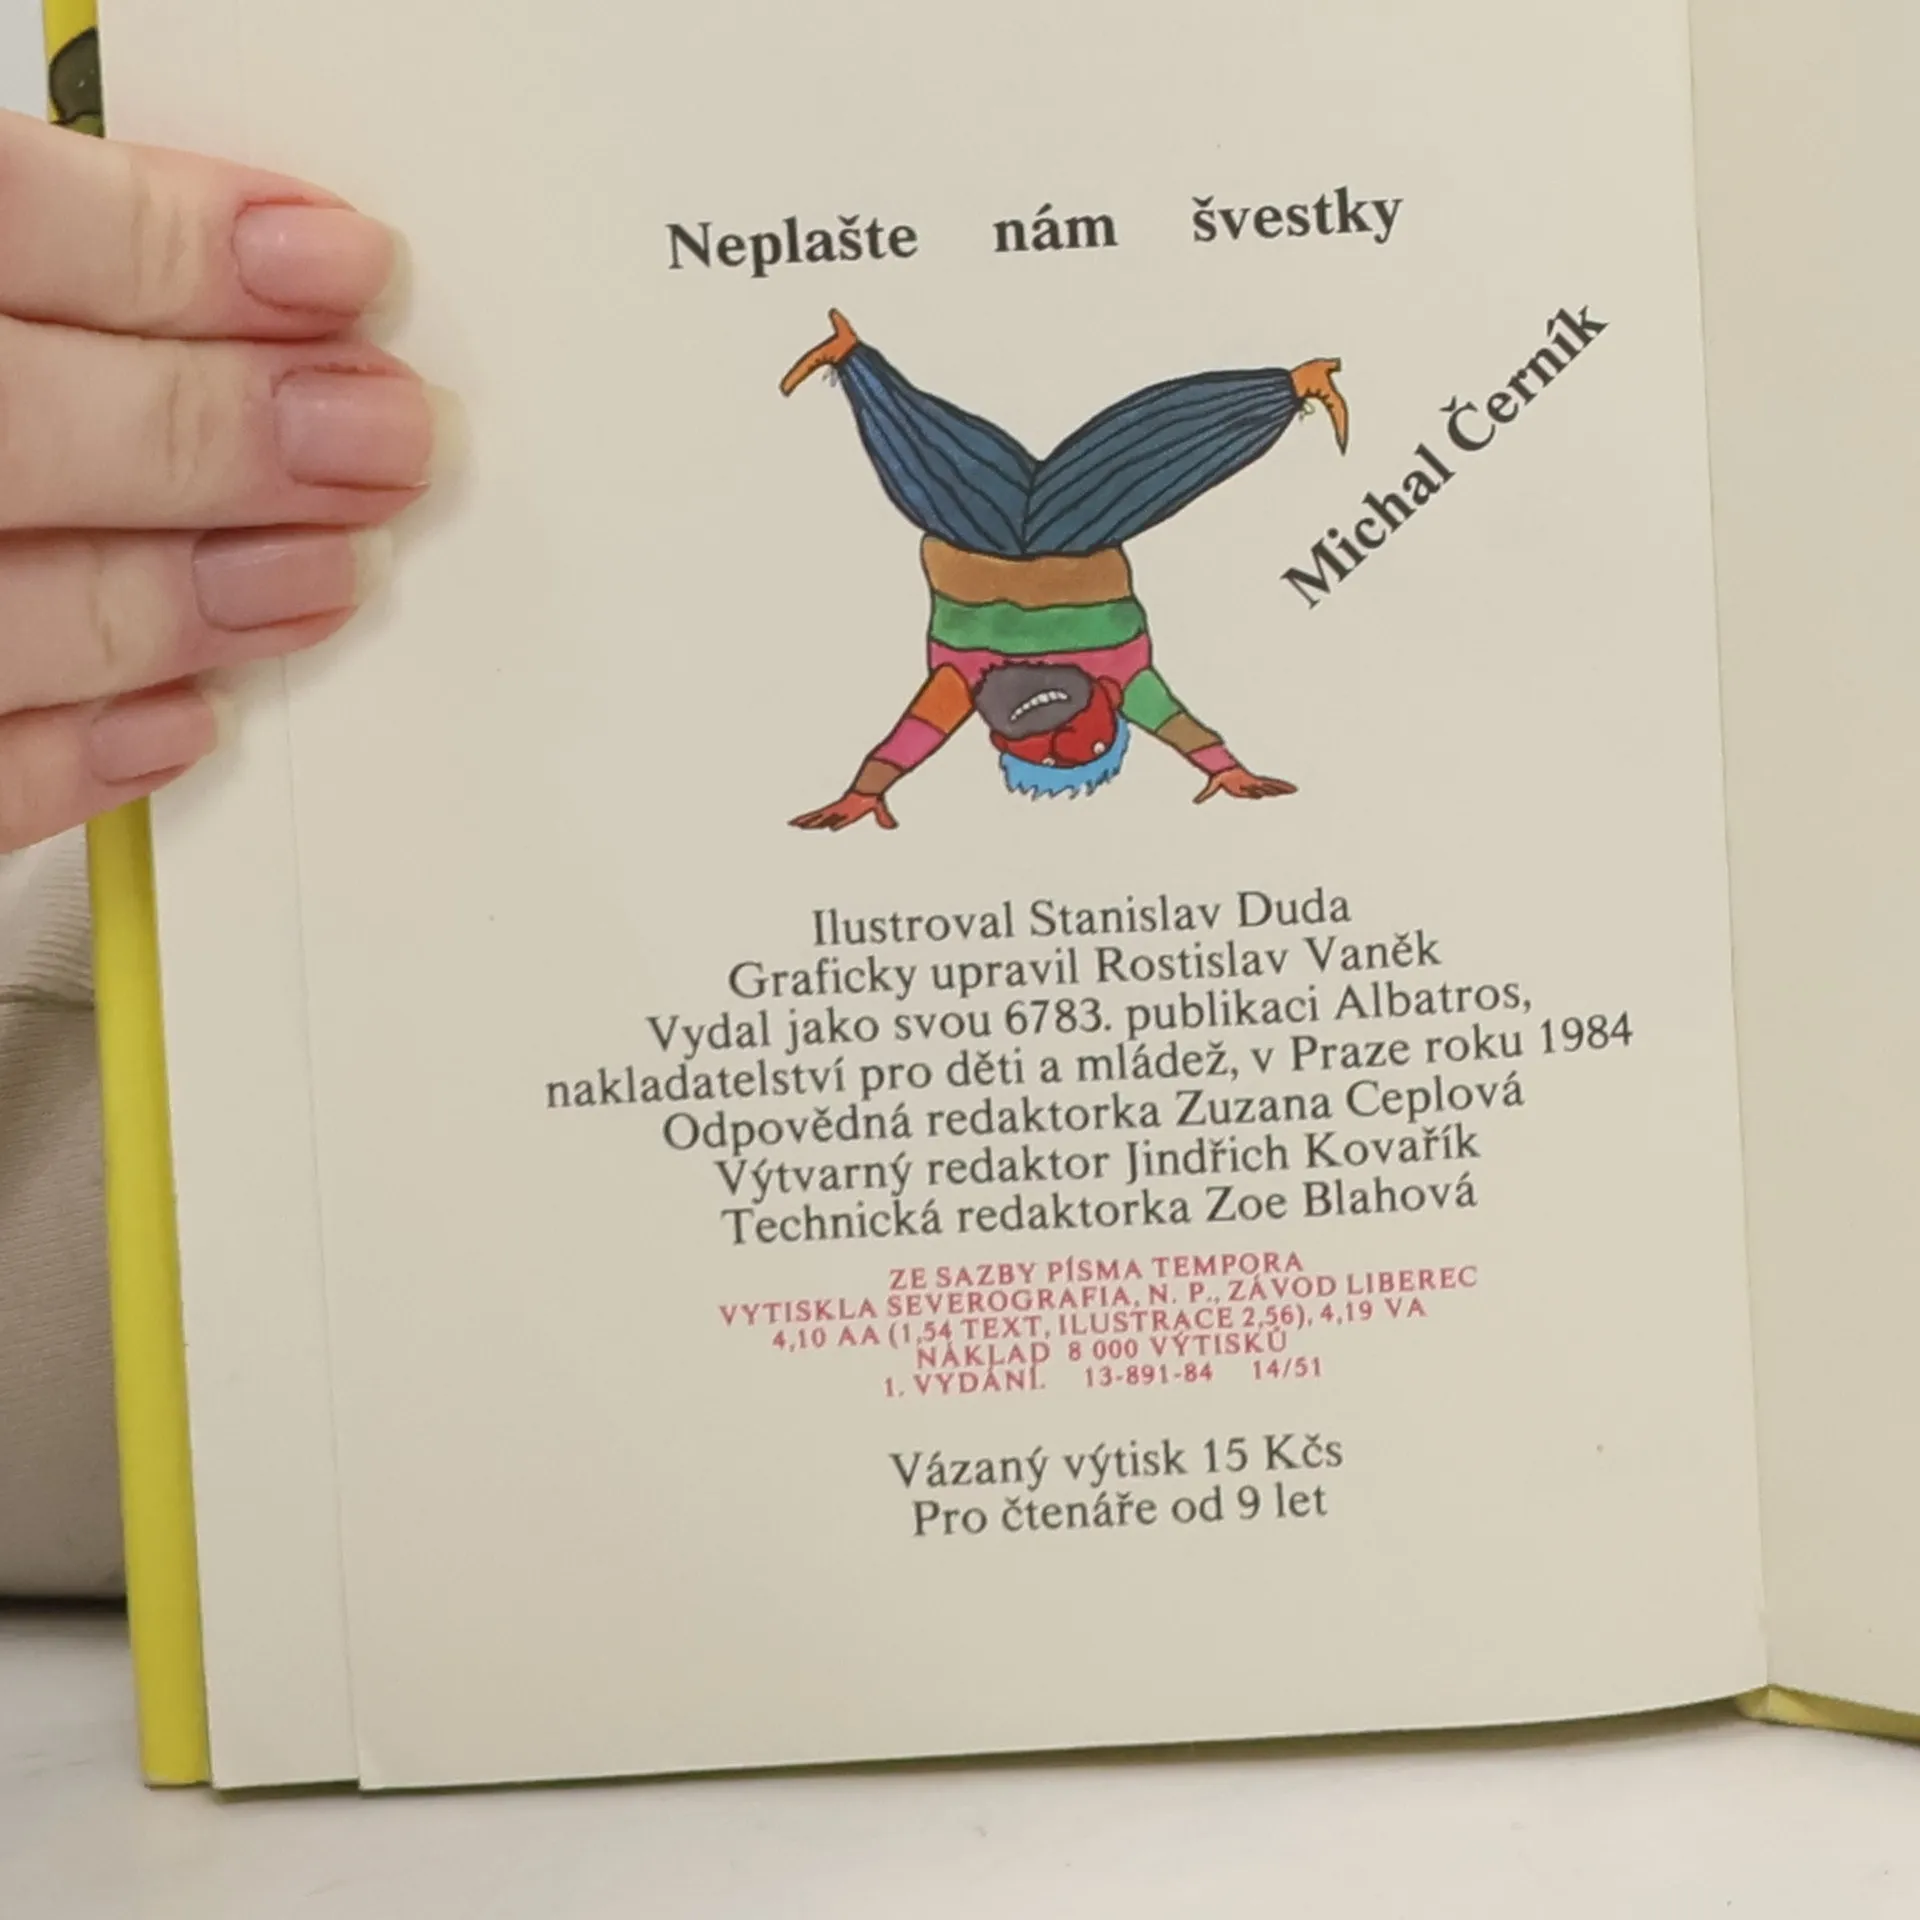 Neplašte nám švestky
Michal Černík
Ilustroval Stanislav Duda
Graficky upravil Rostislav Vaněk
Vydal jako svou 6783. publikaci Albatros,
nakladatelství pro děti a mládež, v Praze roku 1984
Odpovědná redaktorka Zuzana Ceplová
Výtvarný redaktor Jindřich Kovařík
Technická redaktorka Zoe Blahová
ZE SAZBY PÍSMA TEMPORA
VYTISKLA SEVEROGRAFIA, N. P., ZÁVOD LIBEREC
4,10 AA (1,54 TEXT, ILUSTRACE 2,56), 4,19 VA
NÁKLAD 8 000 VÝTISKŮ
1. VYDÁNÍ. 13-891-84 14/51
Vázaný výtisk 15 Kčs
Pro čtenáře od 9 let